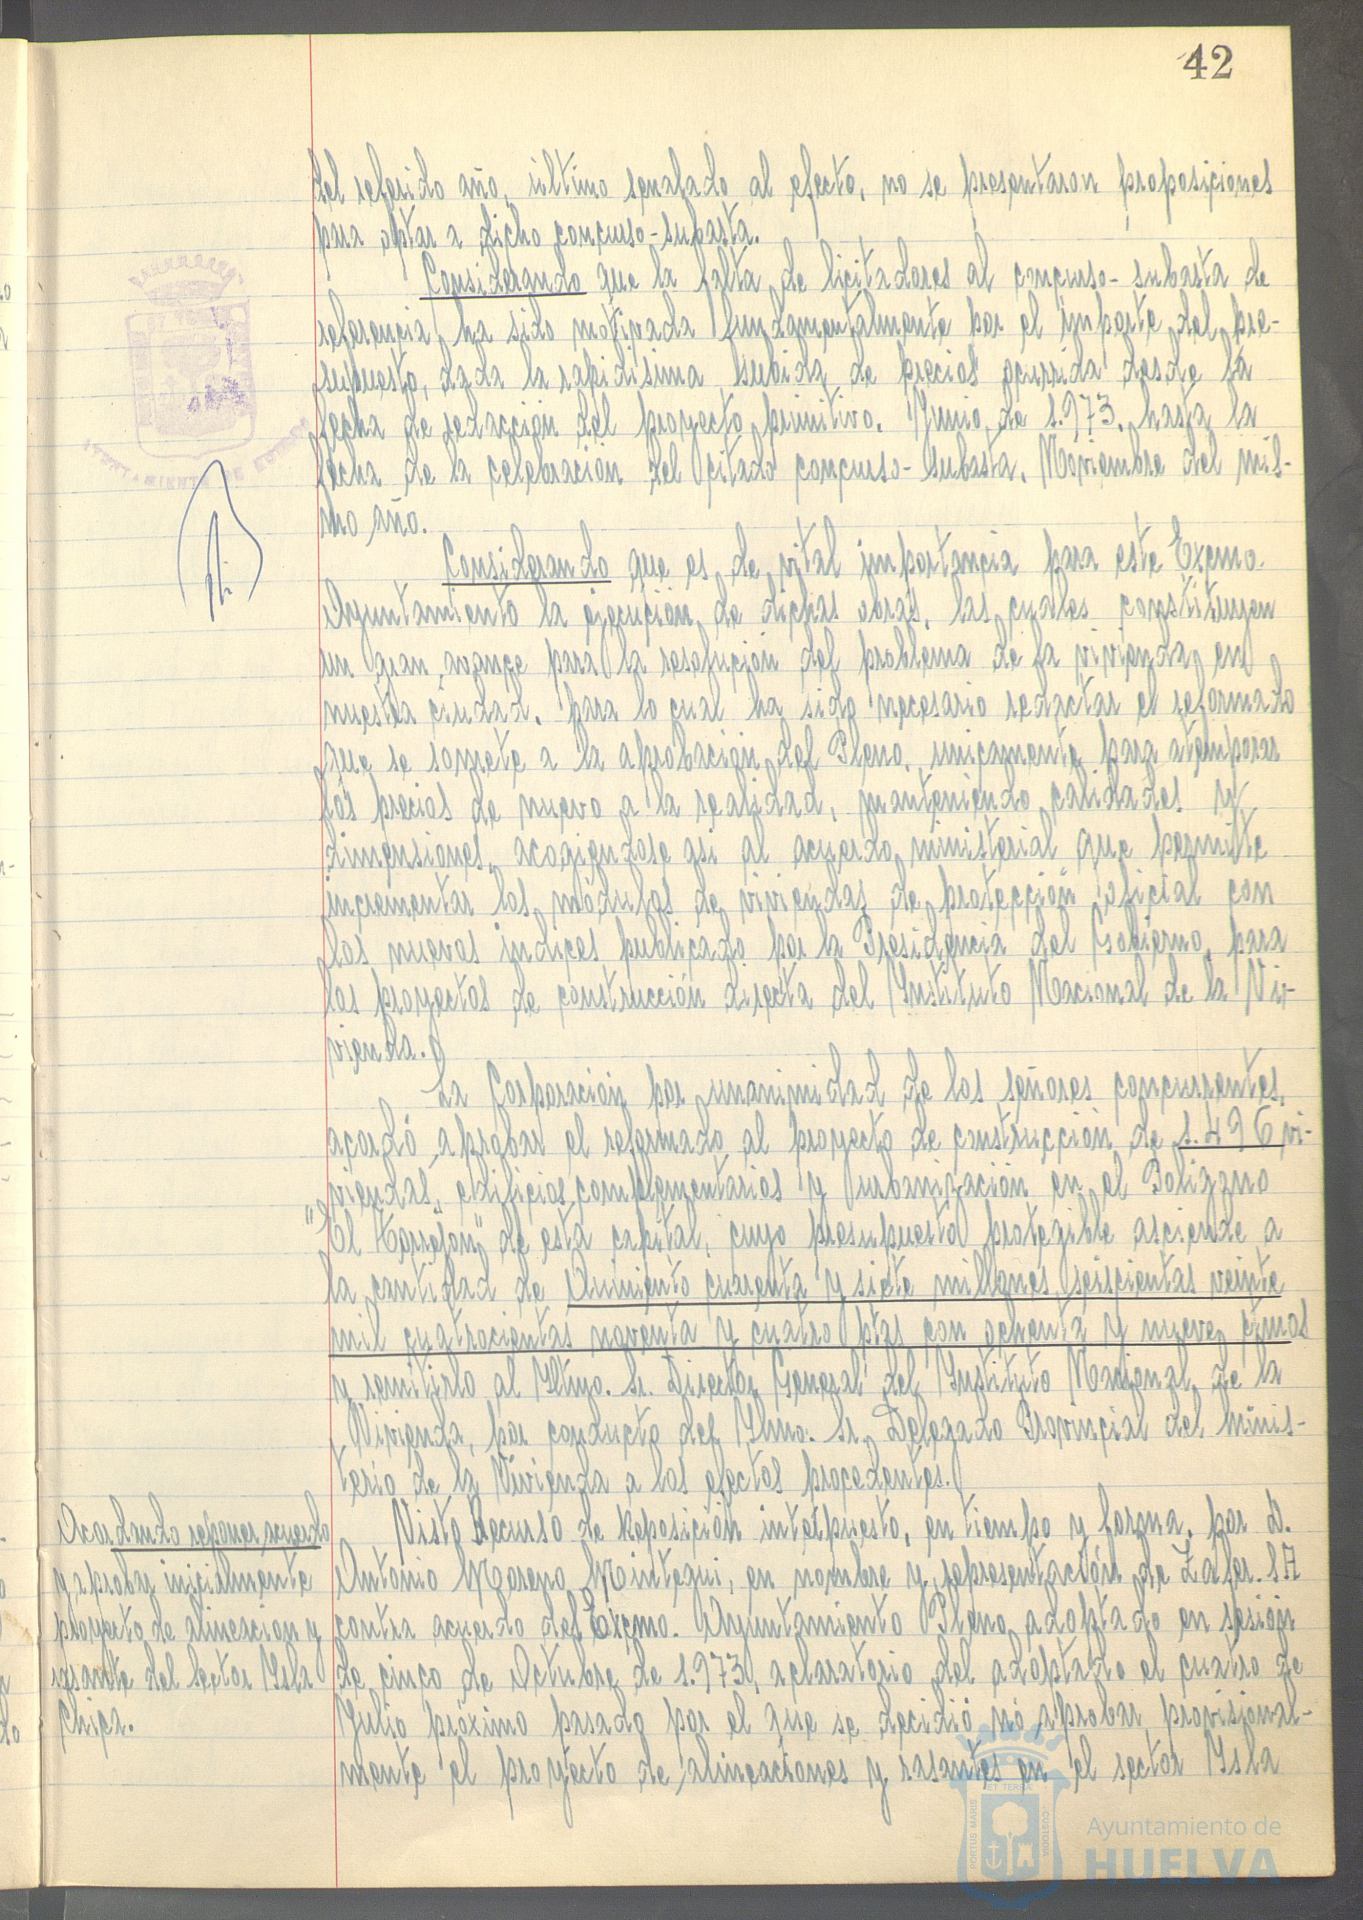 42
del referido año, último senalado al efecto, no se presentaron proposiciones
para optar a dicho concurso-subasta.
Considerando que la falta de licitadores al concurso-subasta de
referencia ha sido motivada fundamentalmente por el importe del pre-
supuesto, dada la rapidisima subida de precios ocurrida desde la
fecha de redacción del proyecto primitivo, Junio de 1.973, hasta la
fecha de la celebración del citado concurso-subasta, Noviembre del mis-
mo año.
Considerando que es de vital importancia para este Excmo.
Ayuntamiento la ejecución de dichas obras, las cuales constituyen
un gran avance para la resolución del problema de la vivienda en
nuestra ciudad, para lo cual ha sido necesario redactar el reformado
que se somete a la aprobación del Pleno, unicamente para atemperar
los precios de nuevo a la realidad, manteniendo calidades y
dimensiones, acogiendose asi al acuerdo ministerial que permite
incrementar los módulos de viviendas de protección oficial con
los nuevos indices publicado por la Presidencia del Gobierno, para
los proyectos de construcción directa del Instituto Nacional de la Vi-
vienda.
La Corporación por unanimidad de los señores concurrentes,
acordó aprobar el reformado al proyecto de construcción de 1.496 vi-
viendas, edificios complementarios y urbanización en el Poligono
"El Torrejon" de esta capital, cuyo presupuesto protegible asciende a
la cantidad de Quiniento cuarenta y siete millones seiscientas veinte
mil cuatrocientas noventa y cuatro ptas con ochenta y nueve ctmos
y remitirlo al Iltmo. Sr. Director General del Instituto Nacional de la
Vivienda, por conducto del Ilmo. Sr. Delegado Provincial del Minis-
terio de la Vivienda a los efectos procedentes.
Acordando reponer acuerdo
y aprobar inicialmente
proyecto de alineacion y
rasante del sector Isla
Chica.
Visto Recurso de Reposición interpuesto, en tiempo y forma, por D.
Antonio Moreno Mintegui, en nombre y representación de Zafer. SA
contra acuerdo del Excmo. Ayuntamiento Pleno adoptado en sesión
de cinco de Octubre de 1.973, aclaratorio del adoptado el cuatro de
Julio próximo pasado por el que se decidió no aprobar provisional-
mente el proyecto de alineaciones y rasantes en el sector Isla
PORTUS MARIS
ET TERRA
CUSTODIA
Ayuntamiento de
HUELVA